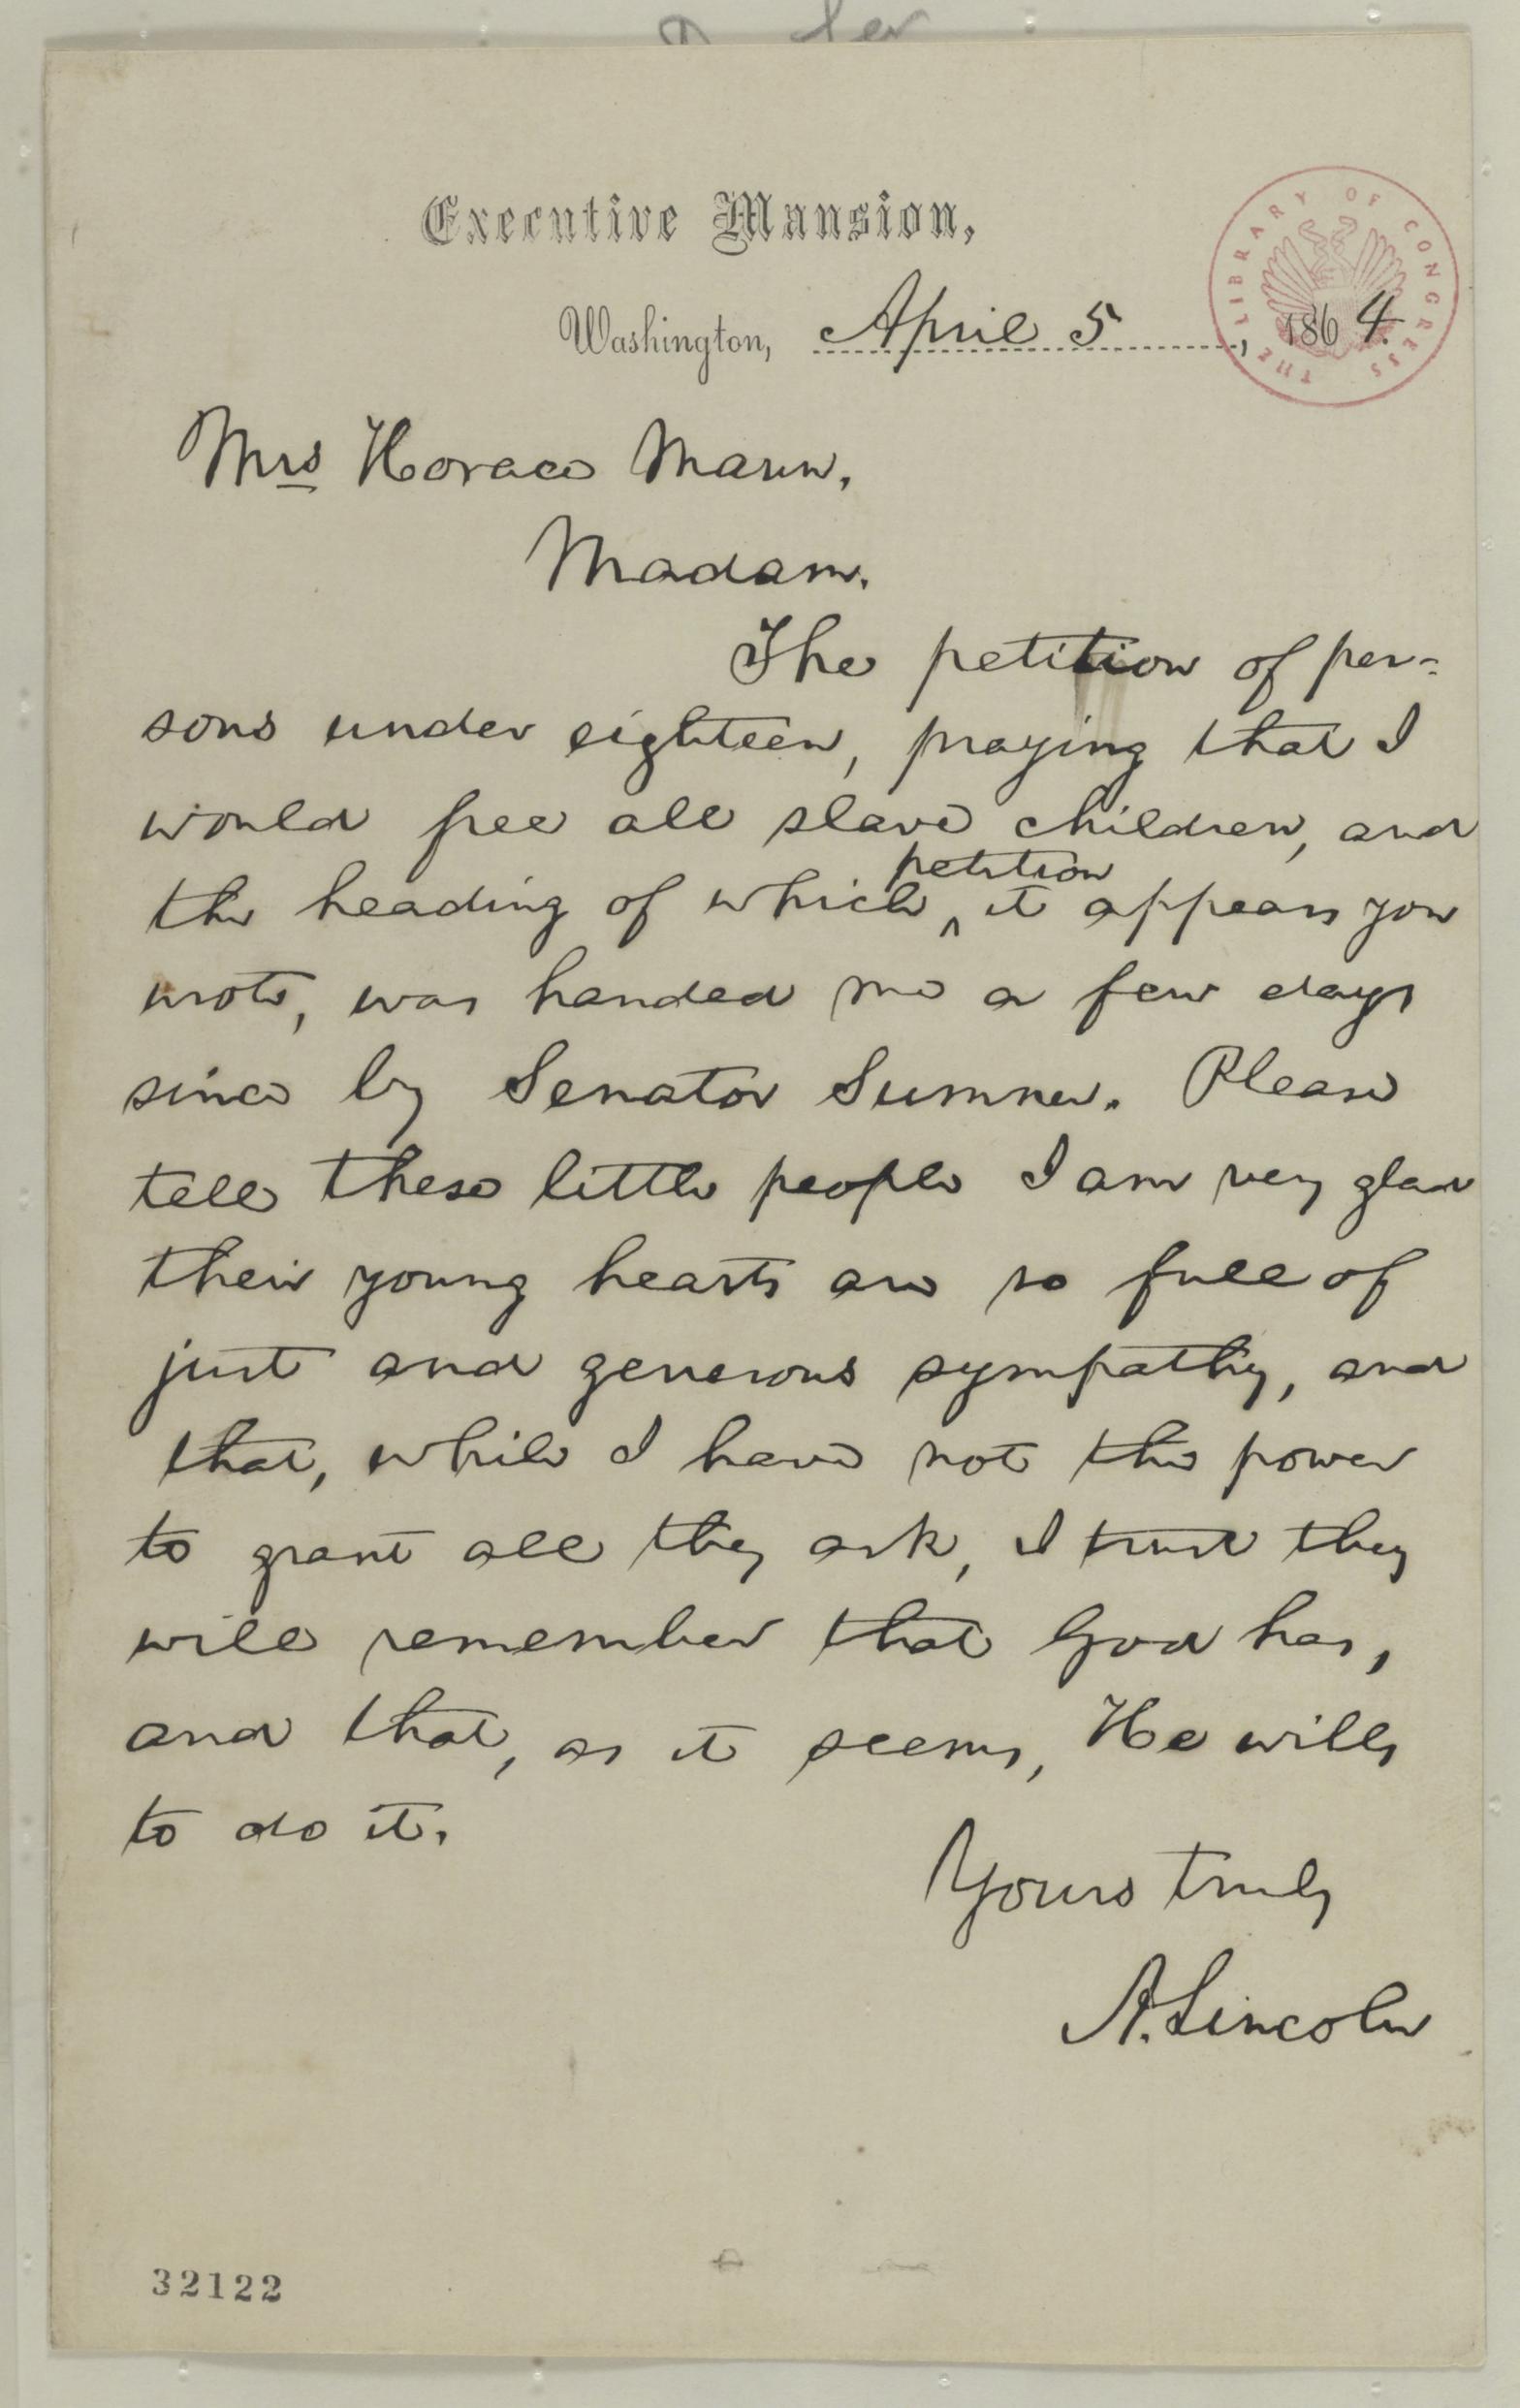 Executive Mansion,
Washington, April 5, 1864.
THE LIBRARY OF CONGRESS
Mrs Horace Mann,
Madam.
The petition of per-
sons under eighteen, praying that I
would free all slave children, and
the heading of which ‸petition it appears you
wrote, was handed me a few days
since by Senator Sumner. Please
tell these little people I am very glad
their young hearts are so full of
just and generous sympathy, and
that, while I have not the power
to grant all they ask, I trust they
will remember that God has,
and that, as it seems, He wills
to do it.
Yours truly
A. Lincoln
32122